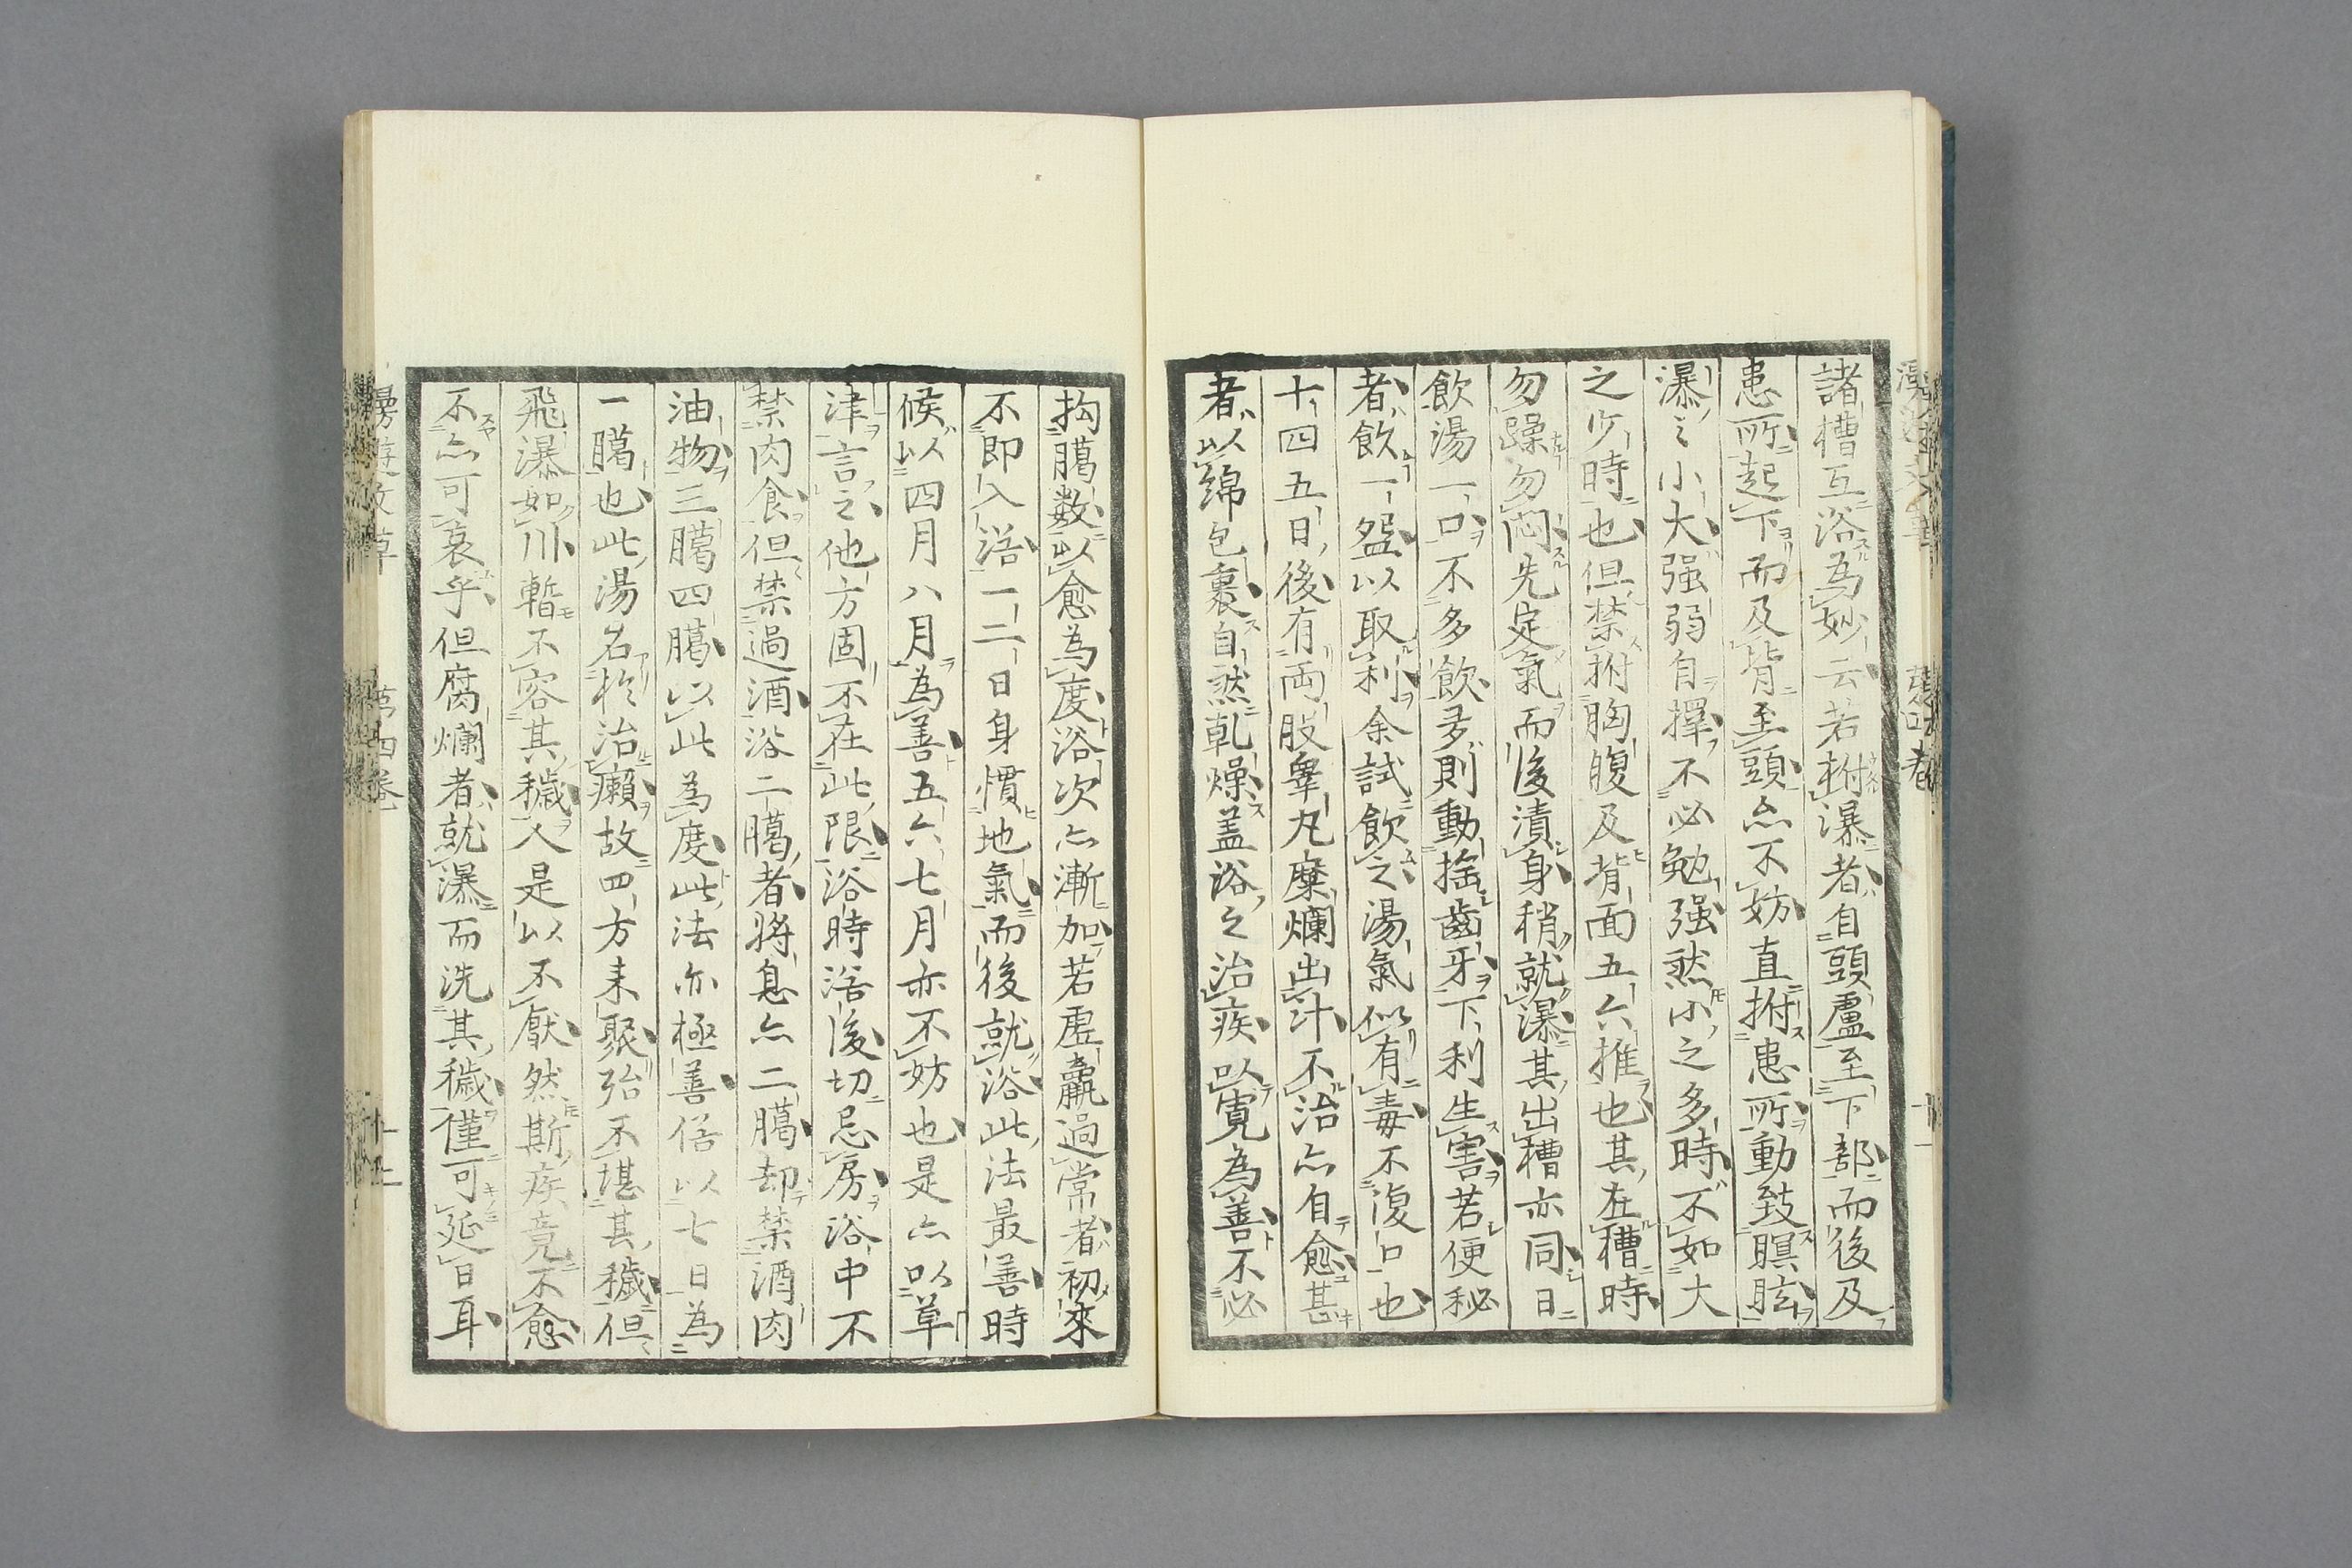 諸槽互浴為妙云若拊瀑者自頭盧至下部而後及
患所起下而及背至頭亦不妨直拊患所動致瞑眩
瀑之小大强弱自擇不必勉强然小之多時不如大
之少時也但禁拊胸腹及背面五六推也其在槽時
勿躁勿悶先定氣而後漬身稍就瀑其出槽亦同日
飲湯一口不多飲多則動揺齒牙下利生害若便秘
者飲一盌以取利余試飲之湯氣似有毒不復口也
十四五日後有両股睾丸糜爛出汁不治亦自愈甚
者以綿包裹自然乾燥盖浴之治疾以寛為善不必
拘臈数以愈為度浴次亦漸加若虛羸過常者初來
不即入浴一二日身慣地氣而後就浴此法最善時
候以四月八月為善五六七月亦不妨也是亦以草
津言之他方固不在此限浴時浴後切忌房浴中不
禁肉食但禁過酒浴二臈者將息亦二臈却禁酒肉
油物三臈四臈以此為度此法亦極善俗以七日為
一臈也此湯名於治癩故四方来聚殆不堪其穢但
飛瀑如川暫不容其穢人是以不厭然斯疾竟不愈
不亦可哀乎但腐爛者就瀑而洗其穢僅可延日耳
漫遊文草
第四卷